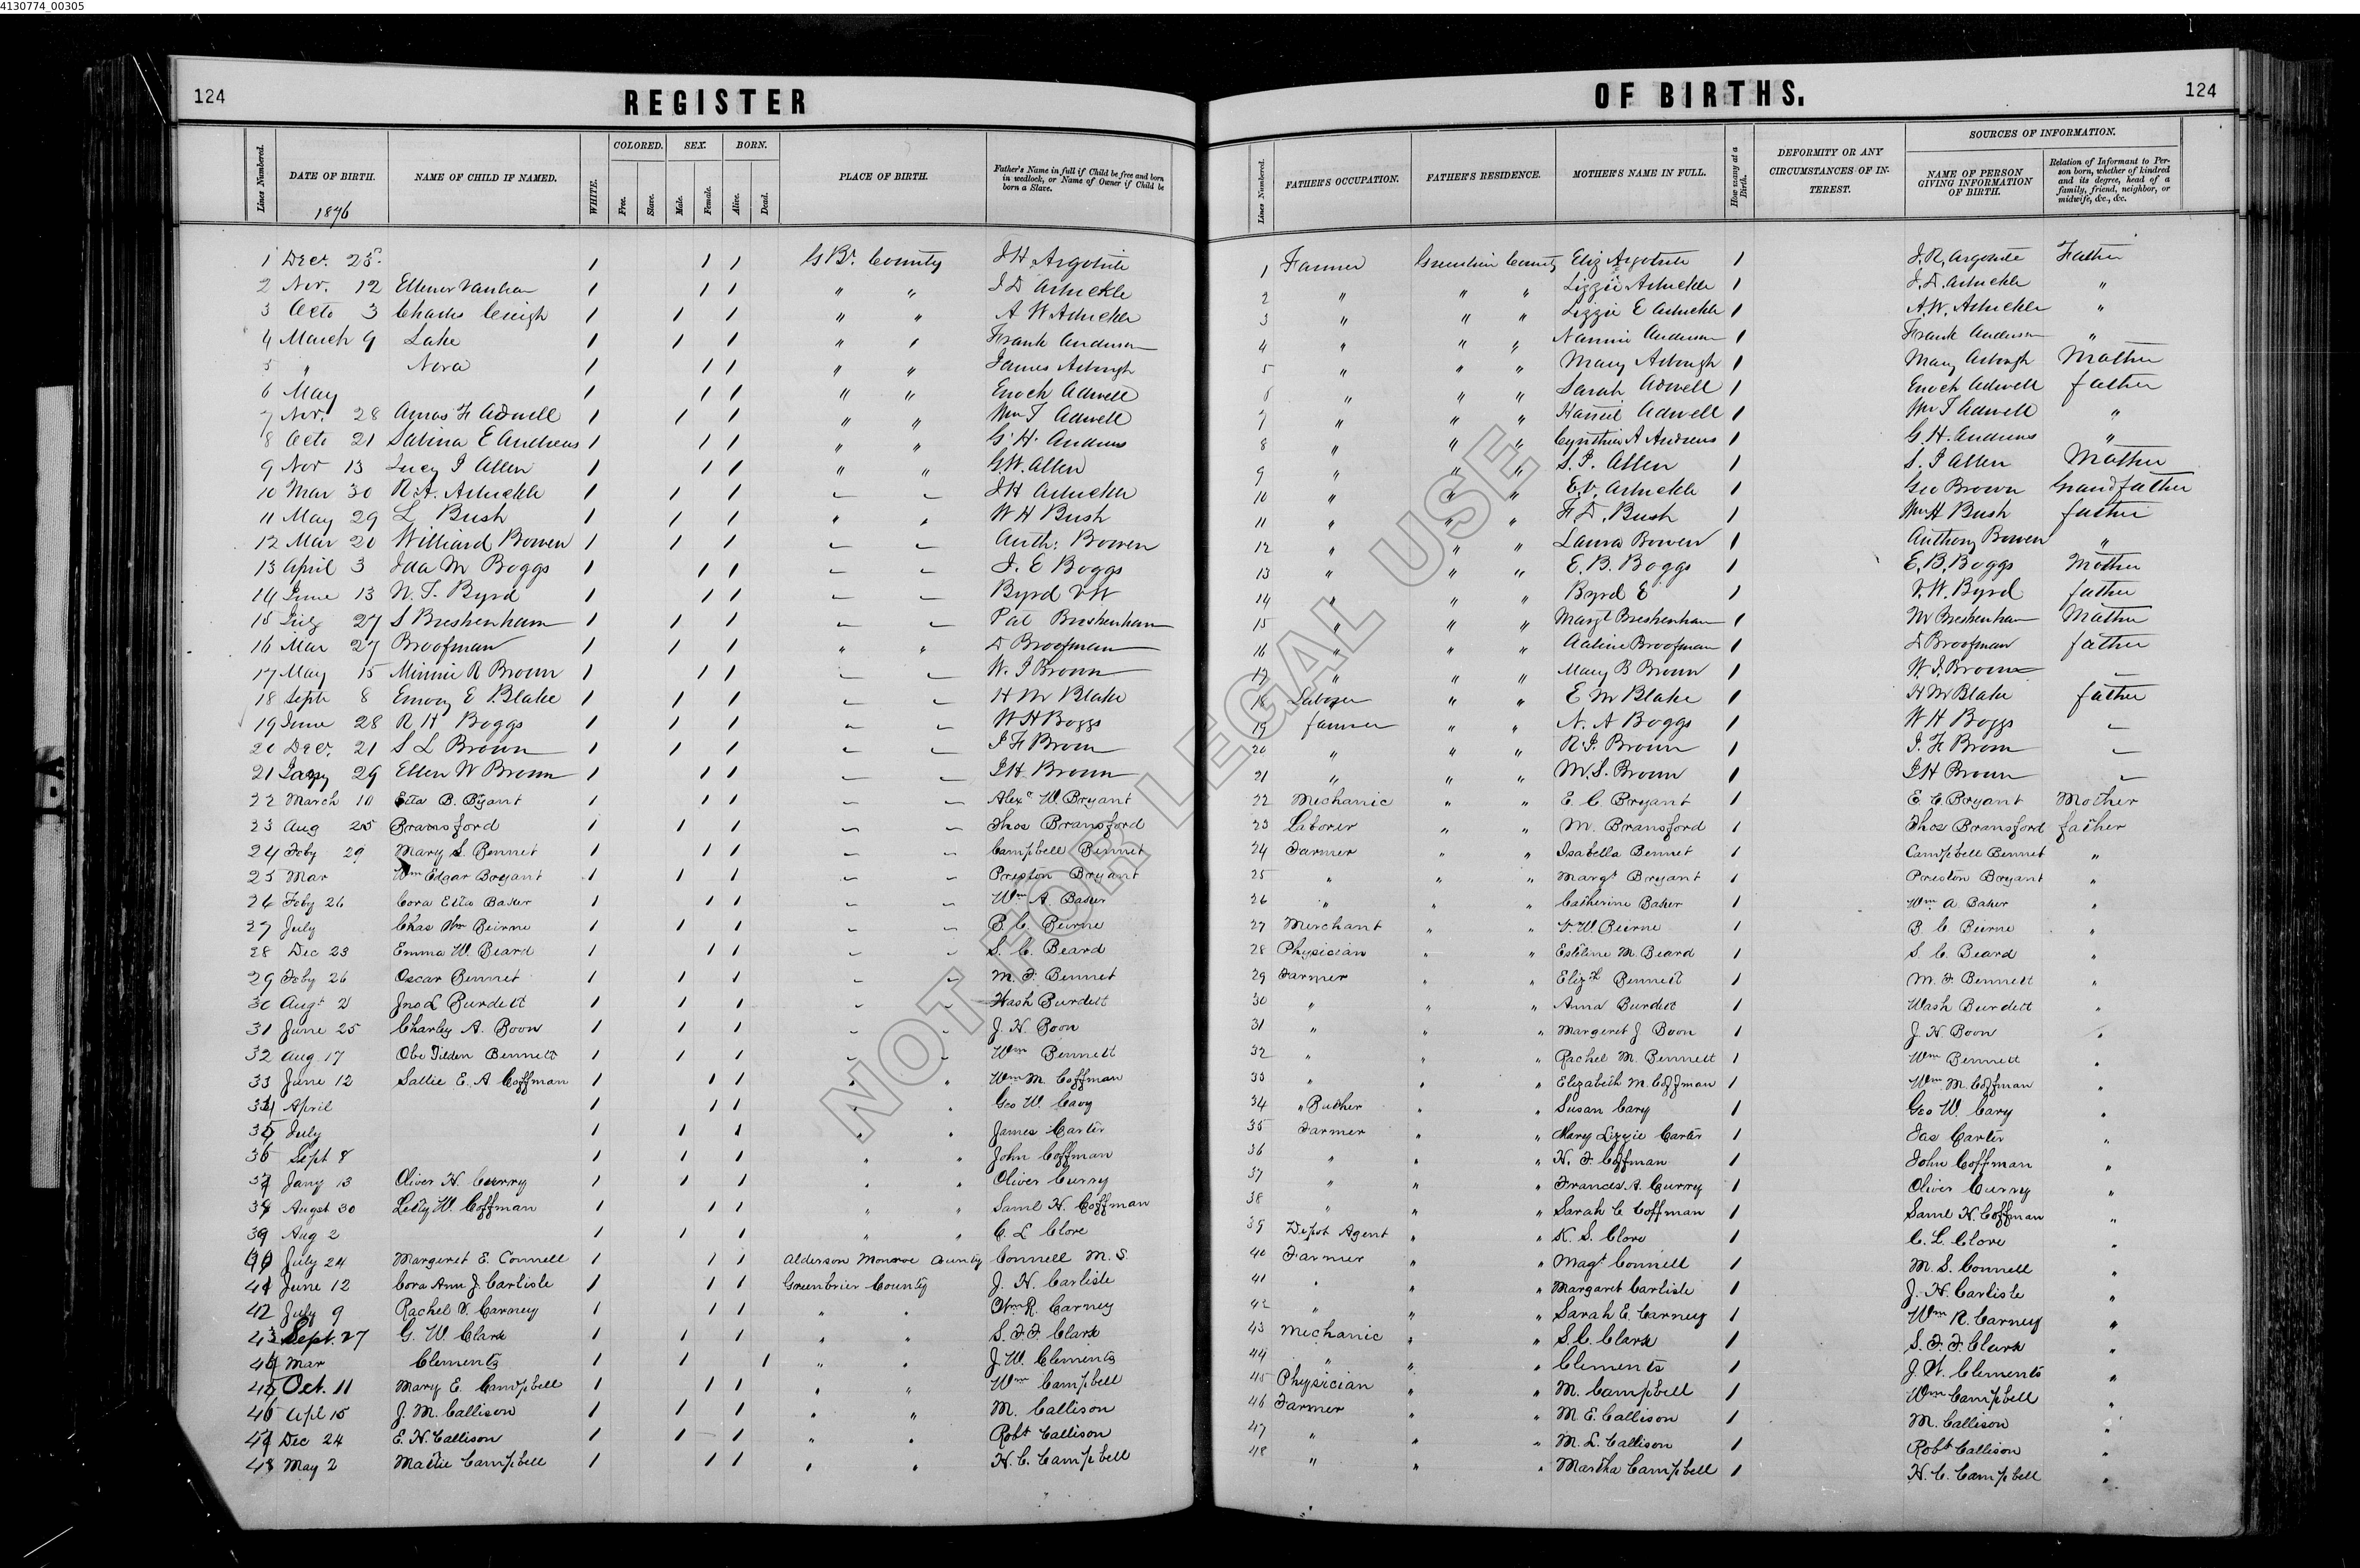 4130774_00305
124
REGISTER
Lines Numbered.
DATE OF BIRTH.
1876
NAME OF CHILD IF NAMED.
WHITE.
COLORED.
Free.
Slave.
SEX.
Male.
Female.
BORN.
Alive.
Dead.
PLACE OF BIRTH.
Father's Name in full if Child be free and born in wedlock, or Name of Owner if Child be born a Slave.
1 Dec. 25. 1 1 1 G Br. County
2 Nov. 12 1 1 1 " " J D Arbuckle
3 Octo 3 Charles Creigh 1 1 1 " " A W Arbuckle
4 March 9 Lake 1 1 1 " " Frank Anderson
5 " Nora 1 1 1 " " James Arbough
6 May 1 1 1 " " Enoch Adwell
7 Nov. 28 Amos F Adwell 1 1 1 " " Wm T Adwell
8 Octo 21 Salina E Andrews 1 1 1 " " G. H. Andrews
9 Nov 13 Lucy J Allen 1 1 1 " " G W. Allen
10 Mar 30 R. A. Arbuckle 1 1 1 " " J H Arbuckle
11 May 29 L Bush 1 1 1 " " W H Bush
12 Mar 20 Williard Bowen 1 1 1 " " Anth: Bowen
13 April 3 Ida M Boggs 1 1 1 " " J. E Boggs
14 June 13 N. T. Byrd 1 1 1 " " Byrd V W
15 27 S Breshenham 1 1 1 " " Pat Breshenham
16 Mar 27 Broofman 1 1 1 " " D Broofman
17 May 15 Minnie R Brown 1 1 1 " " W. J Brown
18 Septr 8 Emory E Blake 1 1 1 " " H M Blake
19 June 28 R H Boggs 1 1 1 " " W H Boggs
20 Dec. 21 S L Brown 1 1 1 " " J F Brown
21 Jany 29 Ellen W Brown 1 1 1 " " J H Brown
22 March 10 Etta B. Bryant 1 1 1 " " Alexr W. Bryant
23 Aug 25 Bransford 1 1 1 " " Thos Bransford
24 Feby 29 Mary S. Bennet 1 1 1 " " Campbell Bennet
25 Mar Wm Edgar Bryant 1 1 1 " " Preston Bryant
26 Feby 26 Cora Etta Baker 1 1 1 " " Wm A. Baker
27 July Chas Wm Beirne 1 1 1 " " B. C. Beirne
28 Dec 23 Emma W. Beard 1 1 1 " " S. C. Beard
29 Feby 26 Oscar Bennet 1 1 1 " " M. F. Bennet
30 Augt 2 Jno L Burdett 1 1 1 " " Wash Burdett
31 June 25 Charley A. Boon 1 1 1 " " J. H. Boon
32 Aug 17 Obe Tilden Bennett 1 1 1 " " Wm Bennett
33 June 12 Sallie E. A Coffman 1 1 1 " " Wm M. Coffman
34 April 1 1 1 " " Geo W. Cary
35 July 1 1 1 " " James Carter
36 Sept 8 1 1 1 " " John Coffman
37 Jany 13 Oliver H. Curry 1 1 1 " " Oliver Curry
38 Augst 30 Letty W. Coffman 1 1 1 " " Saml H. Coffman
39 Aug 2 1 1 1 " " C. L Clore
40 July 24 Margeret E. Connell 1 1 1 Alderson Monroe County Connell M. S.
41 June 12 Cora Ann J. Carlisle 1 1 1 Greenbrier County J. H. Carlisle
42 July 9 Rachel V. Carney 1 1 1 " " Wm R. Carney
43 Sept. 27 G. W. Clark 1 1 1 " " S. F. F. Clark
44 Mar Clements 1 1 1 " " J. W. Clements
45 Oct. 11 Mary E. Campbell 1 1 1 " " Wm Campbell
46 Apl 15 J. M. Callison 1 1 1 " " M. Callison
47 Dec 24 E. H. Callison 1 1 1 " " Robt Callison
48 May 2 Mattie Campbell 1 1 1 " " H. C. Campbell
OF BIRTHS.
124
Lines Numbered.
FATHER'S OCCUPATION.
FATHER'S RESIDENCE.
MOTHER'S NAME IN FULL.
How many at a Birth.
DEFORMITY OR ANY CIRCUMSTANCES OF INTEREST.
SOURCES OF INFORMATION.
NAME OF PERSON GIVING INFORMATION OF BIRTH.
Relation of Informant to Person born, whether of kindred and its degree, head of a family, friend, neighbor, or midwife, &c., &c.
1 Farmer Greenbrier County Eliz 1 Father
2 " " " Lizzie Arbuckle 1 J. D. Arbuckle "
3 " " " Lizzie E Arbuckle 1 A. W. Arbuckle "
4 " " " Nannie Anderson 1 Frank Anderson "
5 " " " Mary Arbough 1 Mary Arbough Mother
6 " " " Sarah Adwell 1 Enoch Adwell father
7 " " " Adwell 1 Wm T Adwell "
8 " " " Cynthia A Andrews 1 G. H. Andrews "
9 " " " S. J. Allen 1 S. J Allen Mother
10 " " " E. V. Arbuckle 1 Geo Brown Grandfather
11 " " " F. D. Bush 1 Wm H Bush father
12 " " " Laura Bowen 1 Anthony Bowen "
13 " " " E. B. Boggs 1 E. B. Boggs Mother
14 " " " Byrd E 1 V. W. Byrd father
15 " " " Margt Breshenham 1 M Breshenham Mother
16 " " " Adline Broofman 1 D Broofman father
17 " " " Mary B Brown 1 W. J. Brown "
18 Laborer " " E M Blake 1 H M Blake father
19 farmer " " N. A Boggs 1 W H Boggs "
20 " " " R. J. Brown 1 J. F Brown "
21 " " " M. S. Brown 1 J H Brown "
22 Mechanic " " E. C Bryant 1 E. C. Bryant Mother
23 Laborer " " M. Bransford 1 Thos Bransford father
24 Farmer " " Isabella Bennet 1 Campbell Bennet "
25 " " " Margt Bryant 1 Preston Bryant "
26 " " " Catherine Baker 1 Wm A Baker "
27 Merchant " " V. W. Beirne 1 B C Beirne "
28 Physician " " Estline M. Beard 1 S. C. Beard "
29 Farmer " " Elizth Bennett 1 M. F. Bennett "
30 " " " Anna Burdett 1 Wash Burdett "
31 " " " Margeret J Boon 1 J. H Boon "
32 " " " Rachel M. Bennett 1 Wm Bennett "
33 " " " Elizabeth M. Coffman 1 Wm M. Coffman "
34 " Bucher " " Susan Cary 1 Geo W. Cary "
35 Farmer " " Mary Lizzie Carter 1 Jas Carter "
36 " " " H. F. Coffman 1 John Coffman "
37 " " " Frances A. Curry 1 Oliver Curry "
38 " " " Sarah C Coffman 1 Saml H. Coffman "
39 Depot Agent " " K. S. Clore 1 C. L. Clore "
40 Farmer " " Magt Connell 1 M. S. Connell "
41 " " " Margaret Carlisle 1 J. H. Carlisle "
42 " " " Sarah E. Carney 1 Wm R. Carney "
43 Mechanic " " S. C. Clark 1 S. F. F. Clark "
44 " " " Clements 1 J. W. Clements "
45 Physician " " M. Campbell 1 Wm Campbell "
46 Farmer " " M. E. Callison 1 M. Callison "
47 " " " M. L. Callison 1 Robt Callison "
48 " " " Martha Campbell 1 H. C. Campbell "
NOT FOR LEGAL USE